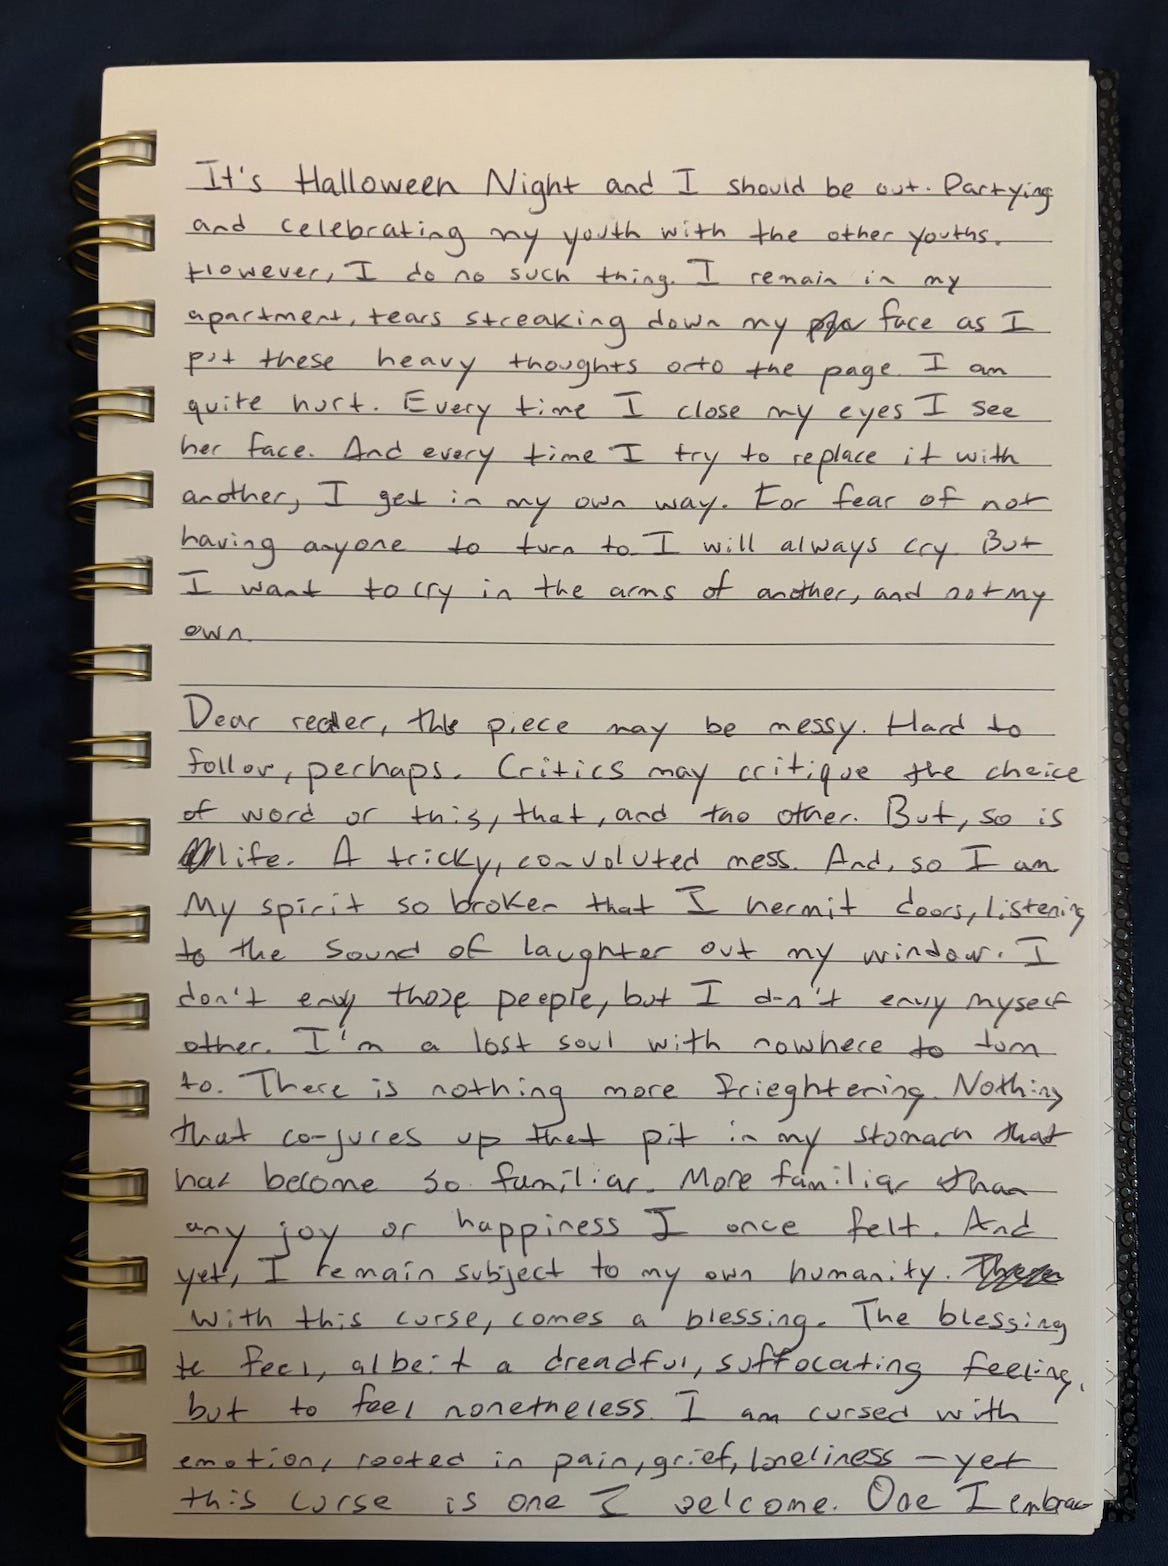 It's Halloween Night and I should be out. Partying
and celebrating my youth with the other youths.
However, I do no such thing. I remain in my
apartment, tears streaking down my face as I
put these heavy thoughts onto the page. I am
quite hurt. Every time I close my eyes I see
her face. And every time I try to replace it with
another, I get in my own way. For fear of not
having anyone to turn to I will always cry. But
I want to cry in the arms of another, and not my
own.
Dear reader, this piece may be messy. Hard to
follow, perhaps. Critics may critique the choice
of word or this, that, and the other. But, so is
life. A tricky, convoluted mess. And, so I am
My spirit so broken that I hermit doors, listening
to the sound of laughter out my window. I
don't envy those people, but I don't envy myself
other. I'm a lost soul with nowhere to turn
to. There is nothing more frieghtering. Nothing
that conjures up that pit in my stomach that
has become so familiar. More familiar than
any joy or happiness I once felt. And
yet, I remain subject to my own humanity.
With this curse, comes a blessing. The blessing
to feel, albeit a dreadful, suffocating feeling,
but to feel nonetheless. I am cursed with
emotion, rooted in pain, grief, loneliness — yet
this curse is one I welcome. One I embrac